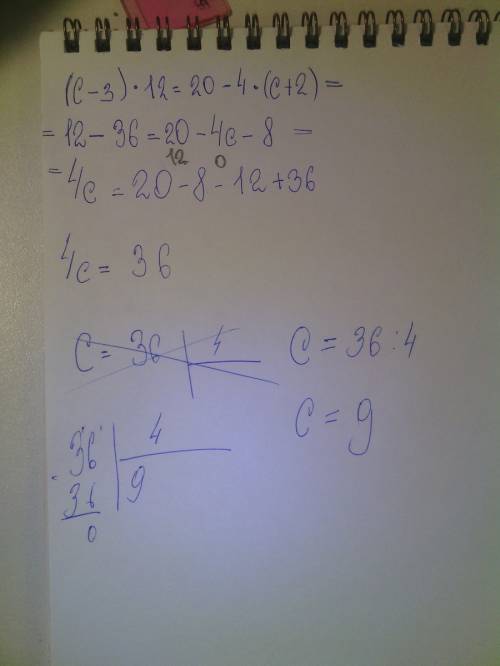 (c-3)·12=20-4·(c+2)=
=12-36=20-4c-8 =
12 0
=4c=20-8-12+36
4c= 36
c= 36 4
c=36:4
c=9
36 4
36 9
0